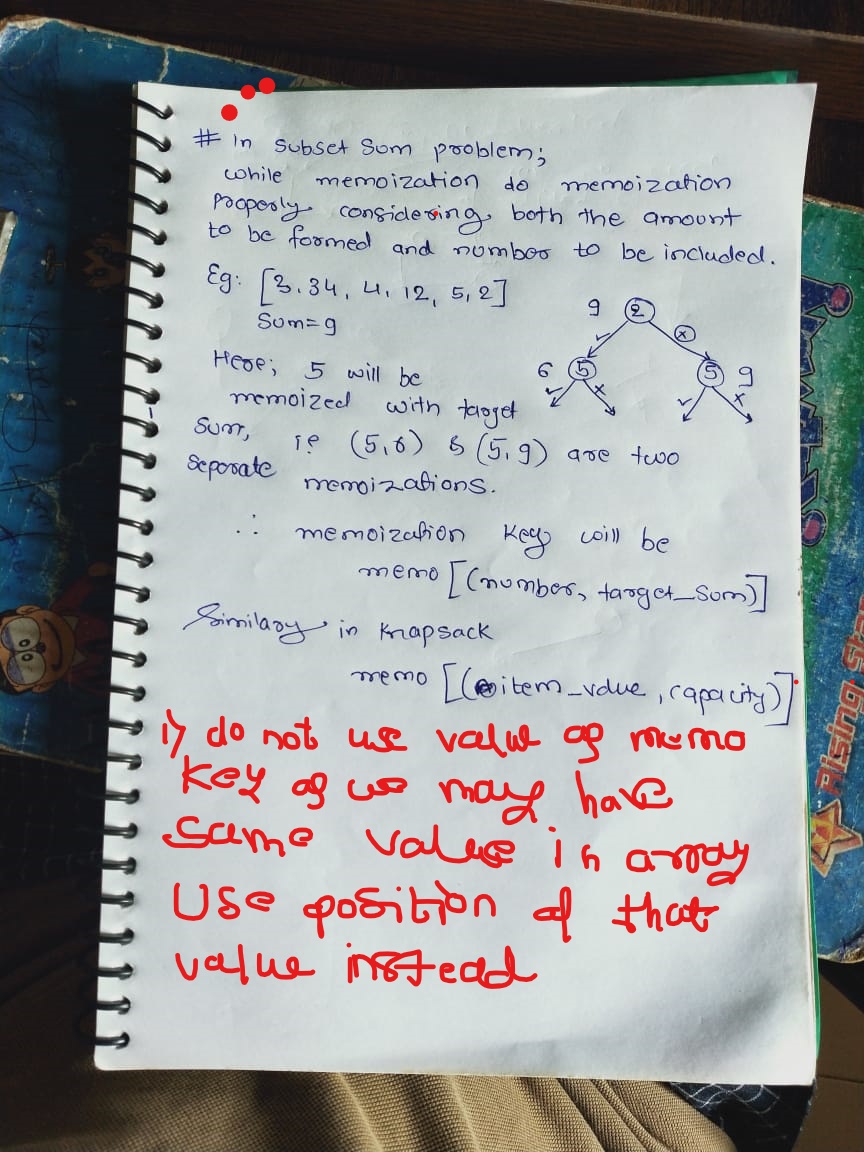 # In subset sum problem;
while memoization do memoization
properly considering both the amount
to be formed and number to be included.
Eg: [3, 34, 4, 12, 5, 2]
Sum=9
9 2 x
6 5 x
5 9 x
Here; 5 will be
memoized with target
sum, ie (5,6) & (5,9) are two
seperate memoizations.
∴ memoization key will be
memo [(number, target_sum)]
Similary in Knapsack
memo [(item_value, capacity)]
1) do not use value as memo
key as we may have
same value in array
Use position of that
value instead
Rising Sta